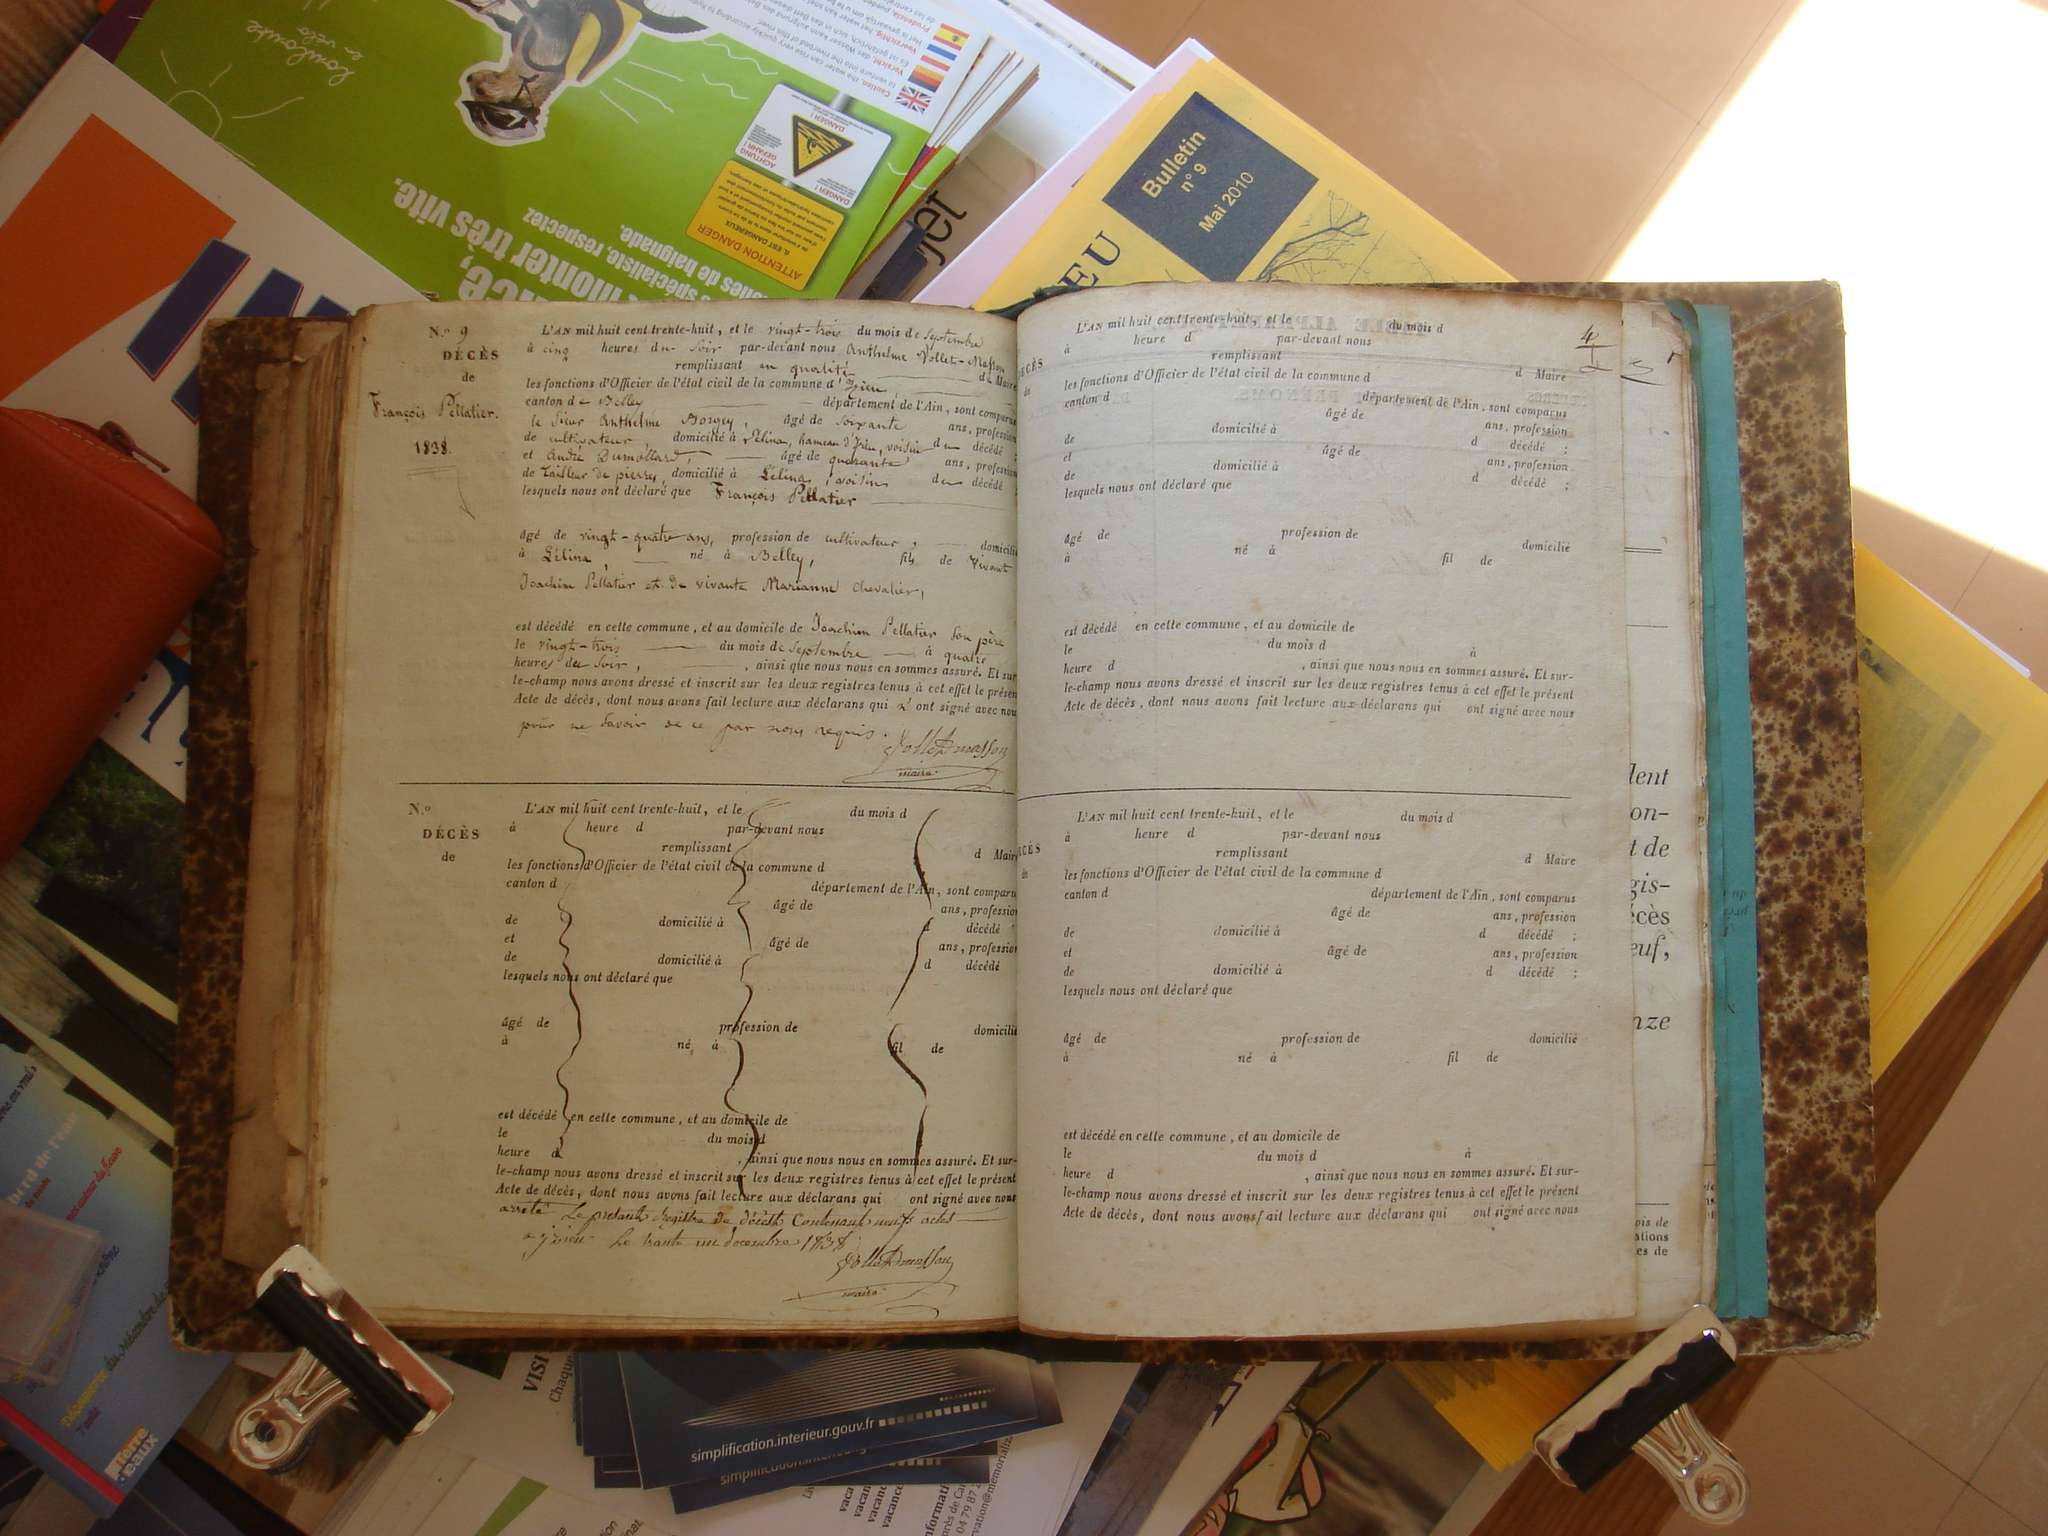 Toulouse
en vélo
Caution, the water can rise very quickly according to hydro
to venture into the riverbed of this river.
DANGER !
ACHTUNG
GEFAHR !
DANGER !
ATTENTION DANGER
IL EST DANGEREUX
monter très vite.
spécialiste, respectez
de baignade.
Bulletin
n° 9
Mai 2010
EU
jet
N.o 9
DÉCÈS
de
François Pellatier.
1838.
L'AN mil huit cent trente-huit, et le vingt-trois du mois de Septembre
à cinq heures du soir par-devant nous Anthelme Vollet-Masson
remplissant en qualité de Maire
les fonctions d'Officier de l'état civil de la commune d'Izieu,
canton de Belley département de l'Ain, sont comparus
le Sieur Anthelme Borgey, âgé de soixante ans, profession
de cultivateur, domicilié à Lélina, hameau d'Izieu, voisin du décédé ;
et André Dumollard, âgé de quarante ans, profession
de tailleur de pierres, domicilié à Lélina, voisin du décédé ;
lesquels nous ont déclaré que François Pellatier
âgé de vingt-quatre ans, profession de cultivateur, domicilié
à Lélina, né à Belley, fils de vivant
Joachim Pellatier et de vivante Marianne Chevalier,
est décédé en cette commune, et au domicile de Joachim Pellatier son père
le vingt-trois du mois de Septembre à quatre
heures du soir, , ainsi que nous nous en sommes assuré. Et sur-
le-champ nous avons dressé et inscrit sur les deux registres tenus à cet effet le présent
Acte de décès, dont nous avons fait lecture aux déclarans qui n'ont signé avec nous
pour ne savoir de ce par nous requis.
Vollet Masson
maire
N.o
DÉCÈS
de
L'AN mil huit cent trente-huit, et le du mois d
à heure d par-devant nous
remplissant d Maire
les fonctions d'Officier de l'état civil de la commune d
canton d département de l'Ain, sont comparus
âgé de ans, profession
de domicilié à d décédé ;
et âgé de ans, profession
de domicilié à d décédé
lesquels nous ont déclaré que
âgé de profession de domicilié
à né à fil de
est décédé en cette commune, et au domicile de
le du mois d
heure d , ainsi que nous nous en sommes assuré. Et sur-
le-champ nous avons dressé et inscrit sur les deux registres tenus à cet effet le présent
Acte de décès, dont nous avons fait lecture aux déclarans qui ont signé avec nous
arrêté Le présent Registre de décès Contenant neuf actes
a yzieu Le trente un decembre 1838
Vollet Masson
maire
4
DÉCÈS
de
L'AN mil huit cent trente-huit, et le du mois d
à heure d par-devant nous
remplissant d Maire
les fonctions d'Officier de l'état civil de la commune d
canton d département de l'Ain, sont comparus
âgé de ans, profession
de domicilié à d décédé ;
et âgé de ans, profession
de domicilié à d décédé ;
lesquels nous ont déclaré que
âgé de profession de domicilié
à né à fil de
est décédé en cette commune, et au domicile de
le du mois d à
heure d , ainsi que nous nous en sommes assuré. Et sur-
le-champ nous avons dressé et inscrit sur les deux registres tenus à cet effet le présent
Acte de décès, dont nous avons fait lecture aux déclarans qui ont signé avec nous
CÈS
de
L'AN mil huit cent trente-huit, et le du mois d
à heure d par-devant nous
remplissant d Maire
les fonctions d'Officier de l'état civil de la commune d
canton d département de l'Ain, sont comparus
âgé de ans, profession
de domicilié à d décédé ;
et âgé de ans, profession
de domicilié à d décédé ;
lesquels nous ont déclaré que
âgé de profession de domicilié
à né à fil de
est décédé en cette commune, et au domicile de
le du mois d à
heure d , ainsi que nous nous en sommes assuré. Et sur-
le-champ nous avons dressé et inscrit sur les deux registres tenus à cet effet le présent
Acte de décès, dont nous avons fait lecture aux déclarans qui ont signé avec nous
dent
on-
t de
gis-
écès
euf,
nze
terre
d'eaux
VISI
Chaque
simplification.interieur.gouv.fr
simplification.interieur.g
vaca
vacanc
vacance
vacances
04 79 87